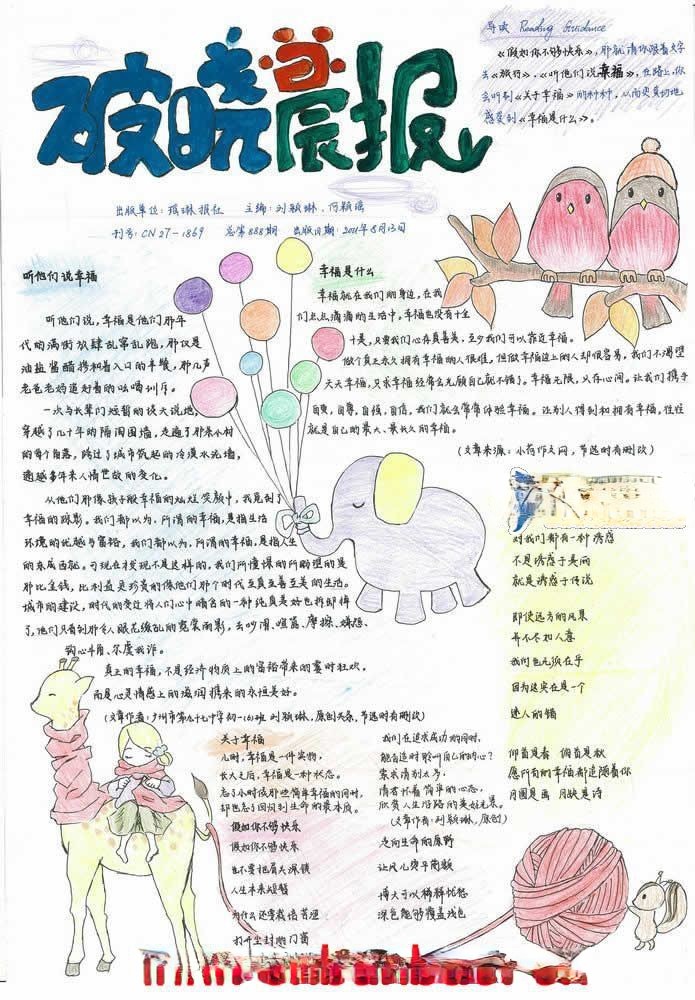 导读 Reading Guidance
《假如你不够快乐》,那就请你跟着文字
去《旅行》,《听他们说幸福》,在路上,你
会听到《关于幸福》的种种,从而更真切地
感受到《幸福是什么》。
破晓晨报
出版单位:琛琳报社 主编:刘颖琳、何颖瑶
刊号:CN27-1869 总第888期 出版日期:2011年8月13日
听他们说幸福
听他们说,幸福是他们那年
代的满街放肆乱窜乱跑,那仅是
油盐酱醋拌和着入口的早餐,那几声
老爸老妈追赶着的吆喝训斥。
一次与长辈们短暂的谈天说地,
穿越了几十年的隔阂围墙,走遍了那条小村
的每个角落,跨过了城市筑起的冷漠水泥墙,
逾越多年来人情世故的变化。
从他们那像孩子般幸福的灿烂笑颜中,我觅到了
幸福的踪影。我们都以为,所谓的幸福,是指生活
环境的优越与富裕,我们都以为,所谓的幸福,是指人生
的东成西就。可现在发现不是这样的,我们所憧憬的所盼望的是
那比金钱,比利益更珍贵的像他们那个时代至真至善至美的生活。
城市的建设,时代的变迁将人们心中啃舍的一种纯真美好也拆卸掉
了,他们只看到那令人眼花缭乱的霓裳雨影,去吵滑、喧嚣、摩擦、嫉妒、
钩心斗角、尔虞我诈。
真正的幸福,不是经济物质上的富裕带来的霎时狂欢,
而是心灵情感上的滋润携来的永恒美好。
(文章作者:广州市第九十七中学初一(6)班 刘颖琳,原创天条,节选时有删改)
幸福是什么
幸福就在我们的身边,在我
们点点滴滴的生活中,幸福也没有十全
十美,只要我们心存真善美,至少我们可以靠近幸福。
做个真正永久拥有幸福的人很难,但做幸福边上的人却很容易,我们不渴望
天天幸福,只求幸福经常会光顾自己就不错了。幸福无限,只存心间。让我们携手
自爱,自尊,自强,自信,我们就会常常体验幸福。让别人得到和拥有幸福,往往
就是自己的最大、最长久的幸福。
(文章来源:小荷作文网,节选时有删改)
对我们都有一种诱惑
不是诱惑于美丽
就是诱惑于传说
即使远方的风景
并不尽如人意
我们也无须在乎
因为这实在是一个
迷人的错
仰首是春 俯首是秋
愿所有的幸福都追随着你
月圆是画 月缺是诗
关于幸福
儿时,幸福是一件实物,
长大之后,幸福是一种状态。
忘了小时候那些简单幸福的同时,
却也忘了回问到生命的最本质。
我们在追求成功的同时,
能否适时聆听自己的内心?
索求请别太多,
请君怀着简单的心态,
欣赏人生沿路的美好光景。
(文章作者:刘颖琳,原创)
假如你不够快乐
假如你不够快乐
也不要把眉头深锁
人生本来短暂
为什么还要栽培苦涩
打开尘封的门窗
走向生命的原野
让风儿熨平前额
博大可以稀释忧愁
深色能够覆盖浅色